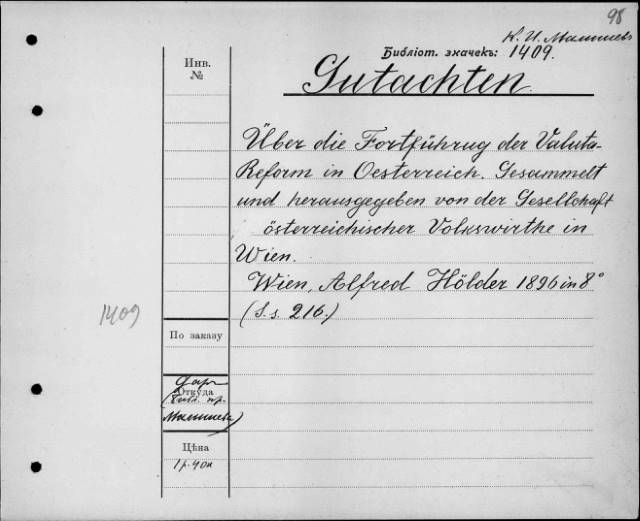 98
К. И. Малышевъ
Библіот. значекъ: 1409.
Инв.
№
Gutachten
Über die Fortführug der Valuta-
Reform in Oesterreich. Gesammelt
und herausgegeben von der Gesellchaft
österreichischer Volkswirthe in
Wien.
Wien, Alfred Hölder 1896 in 8°
(S.s. 216.)
1409
По заказу
Даръ
Откуда
(библ. пр.
Малышева)
Цѣна
1 р. 40 к